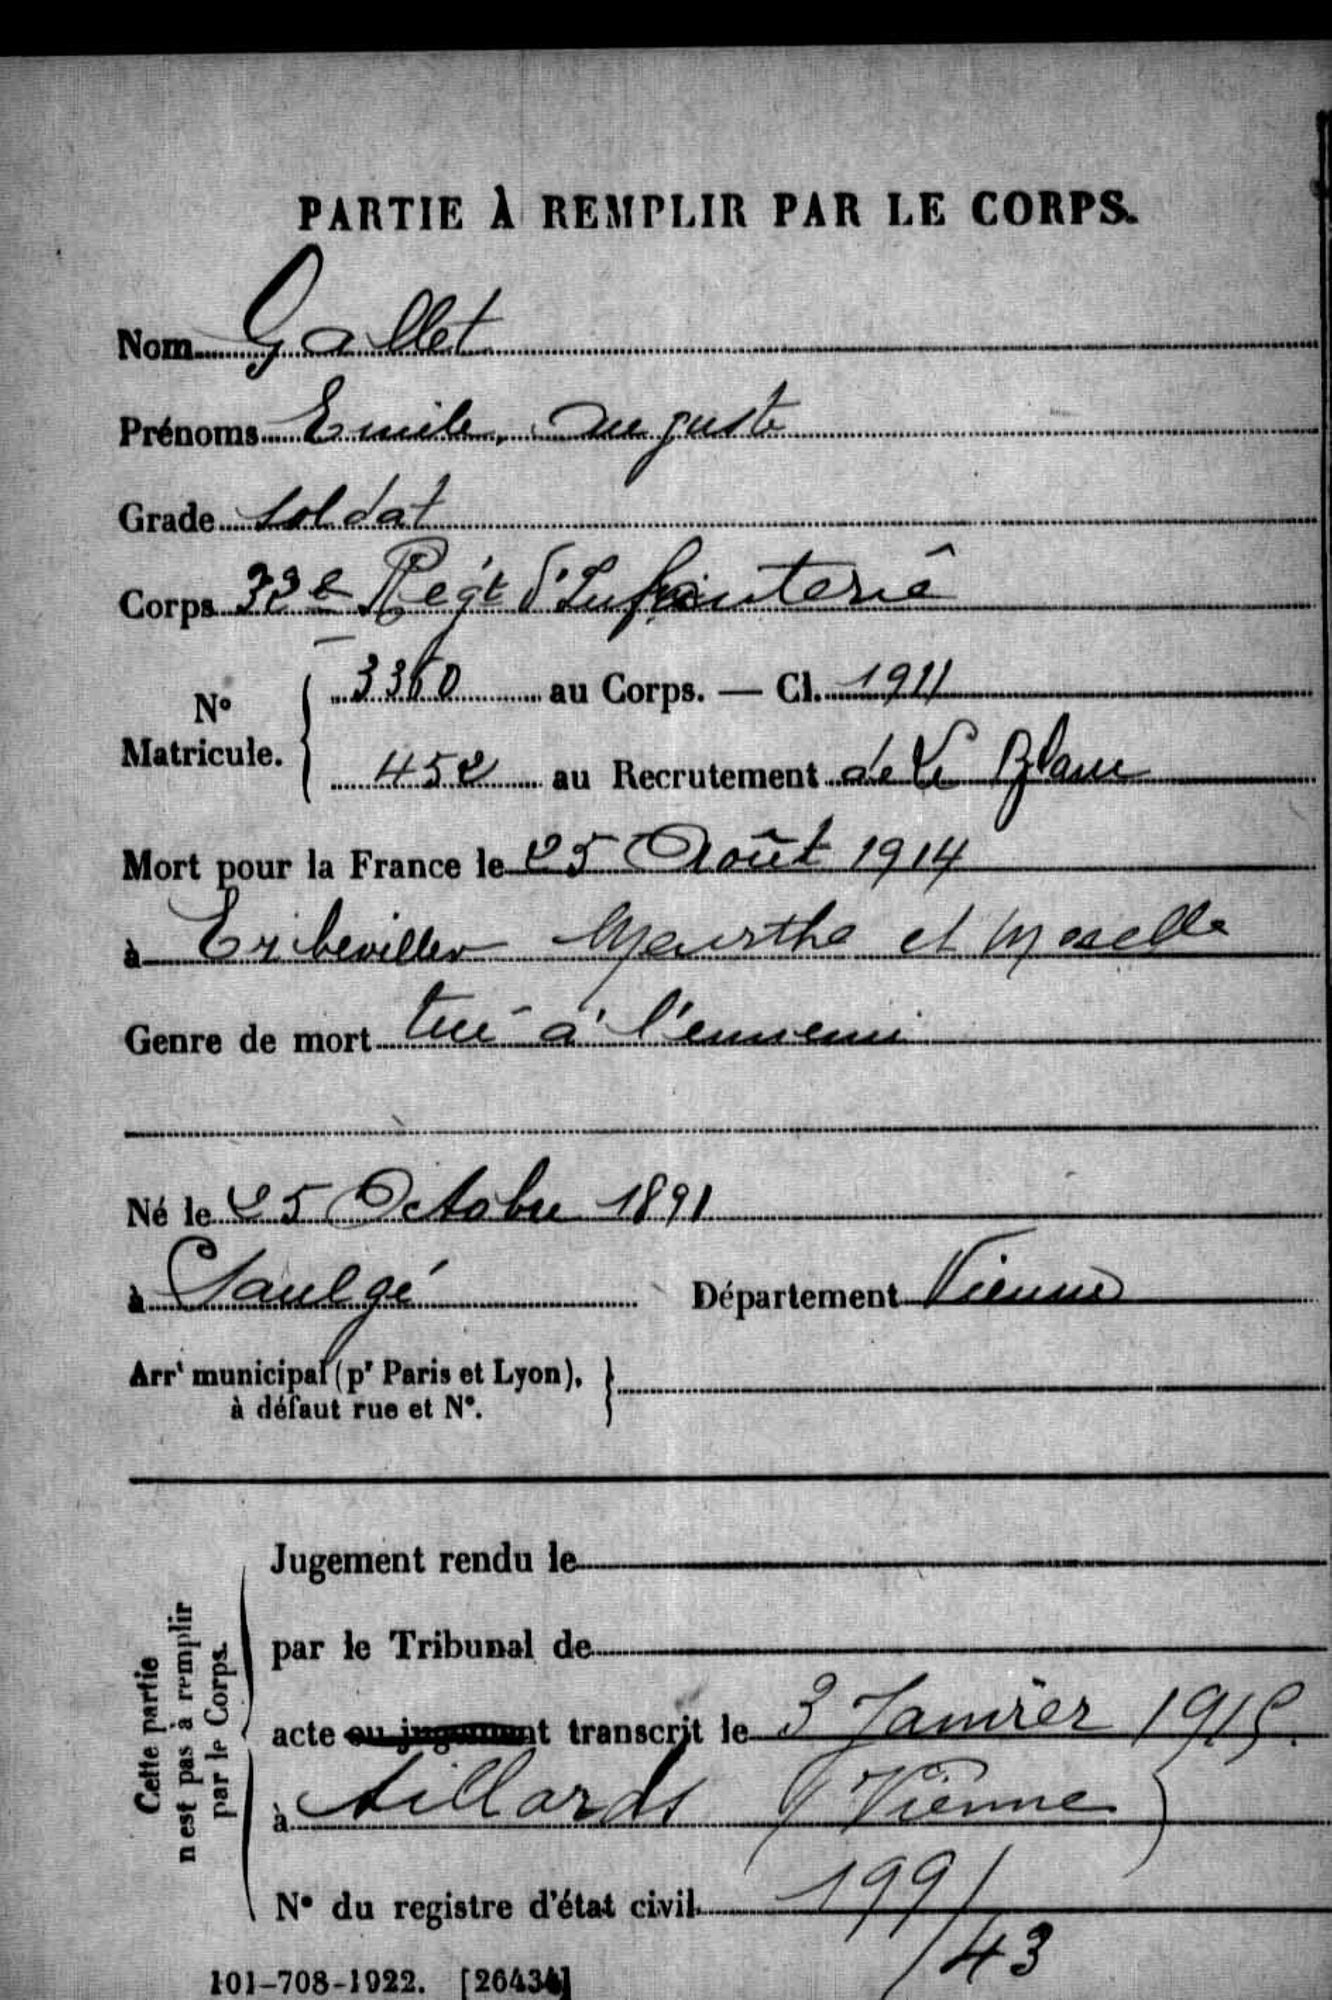 PARTIE À REMPLIR PAR LE CORPS.
Nom Gallet
Prénoms Emile, Auguste
Grade Soldat
Corps 33e Régt d'Infanterie
No Matricule. 3360 au Corps. — Cl. 1911
452 au Recrutement de Le Blanc
Mort pour la France le 25 Août 1914
à Gribeviller Meurthe et Moselle
Genre de mort tué à l'ennemi
Né le 25 Octobre 1891
à Saulgé Département Vienne
Arrt municipal (pr Paris et Lyon),
à défaut rue et No.
Cette partie
n'est pas à remplir
par le Corps.
Jugement rendu le
par le Tribunal de
acte ou jugement transcrit le 3 Janvier 1915.
à Sillards (Vienne)
No du registre d'état civil 199/43
101-708-1922. [26434]